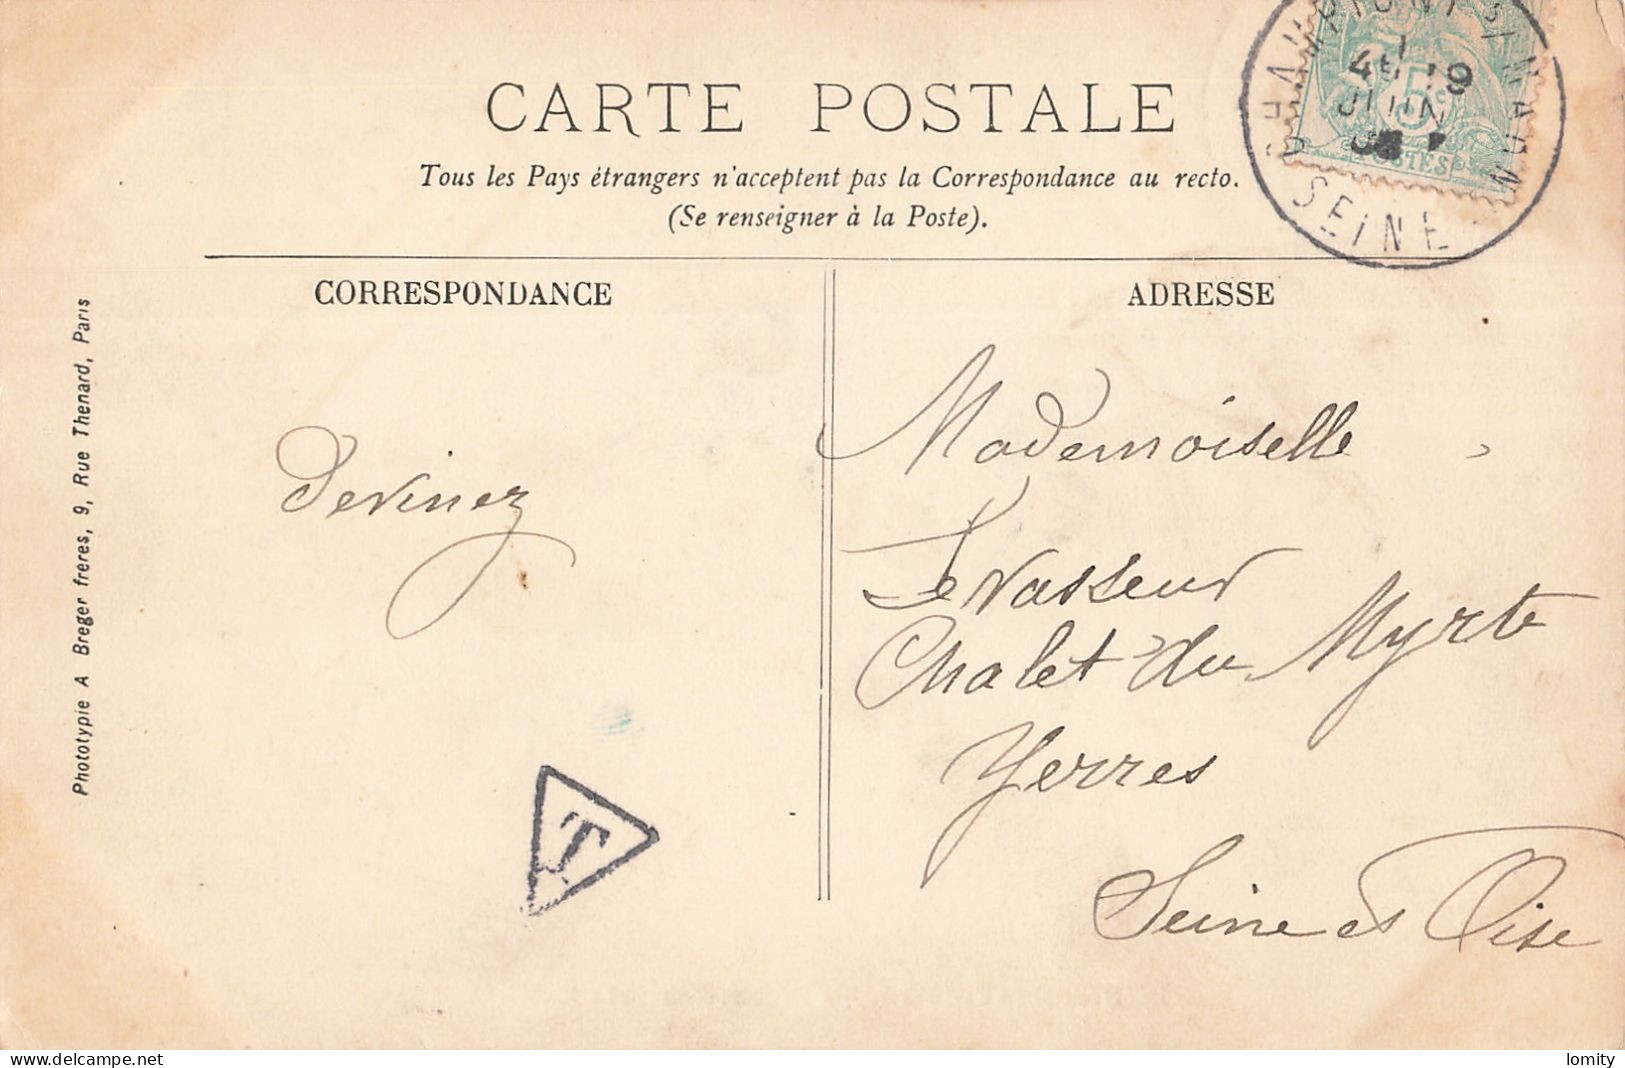 CARTE POSTALE
Tous les Pays étrangers n'acceptent pas la Correspondance au recto.
(Se renseigner à la Poste).
5c
POSTES
JUIN
SEINE
CORRESPONDANCE
ADRESSE
Phototypie A Breger freres, 9, Rue Thenard, Paris
Devinez
T
Mademoiselle
Levasseur
Chalet du Myrte
Yerres
Seine et Oise
lomity
delcampe.net